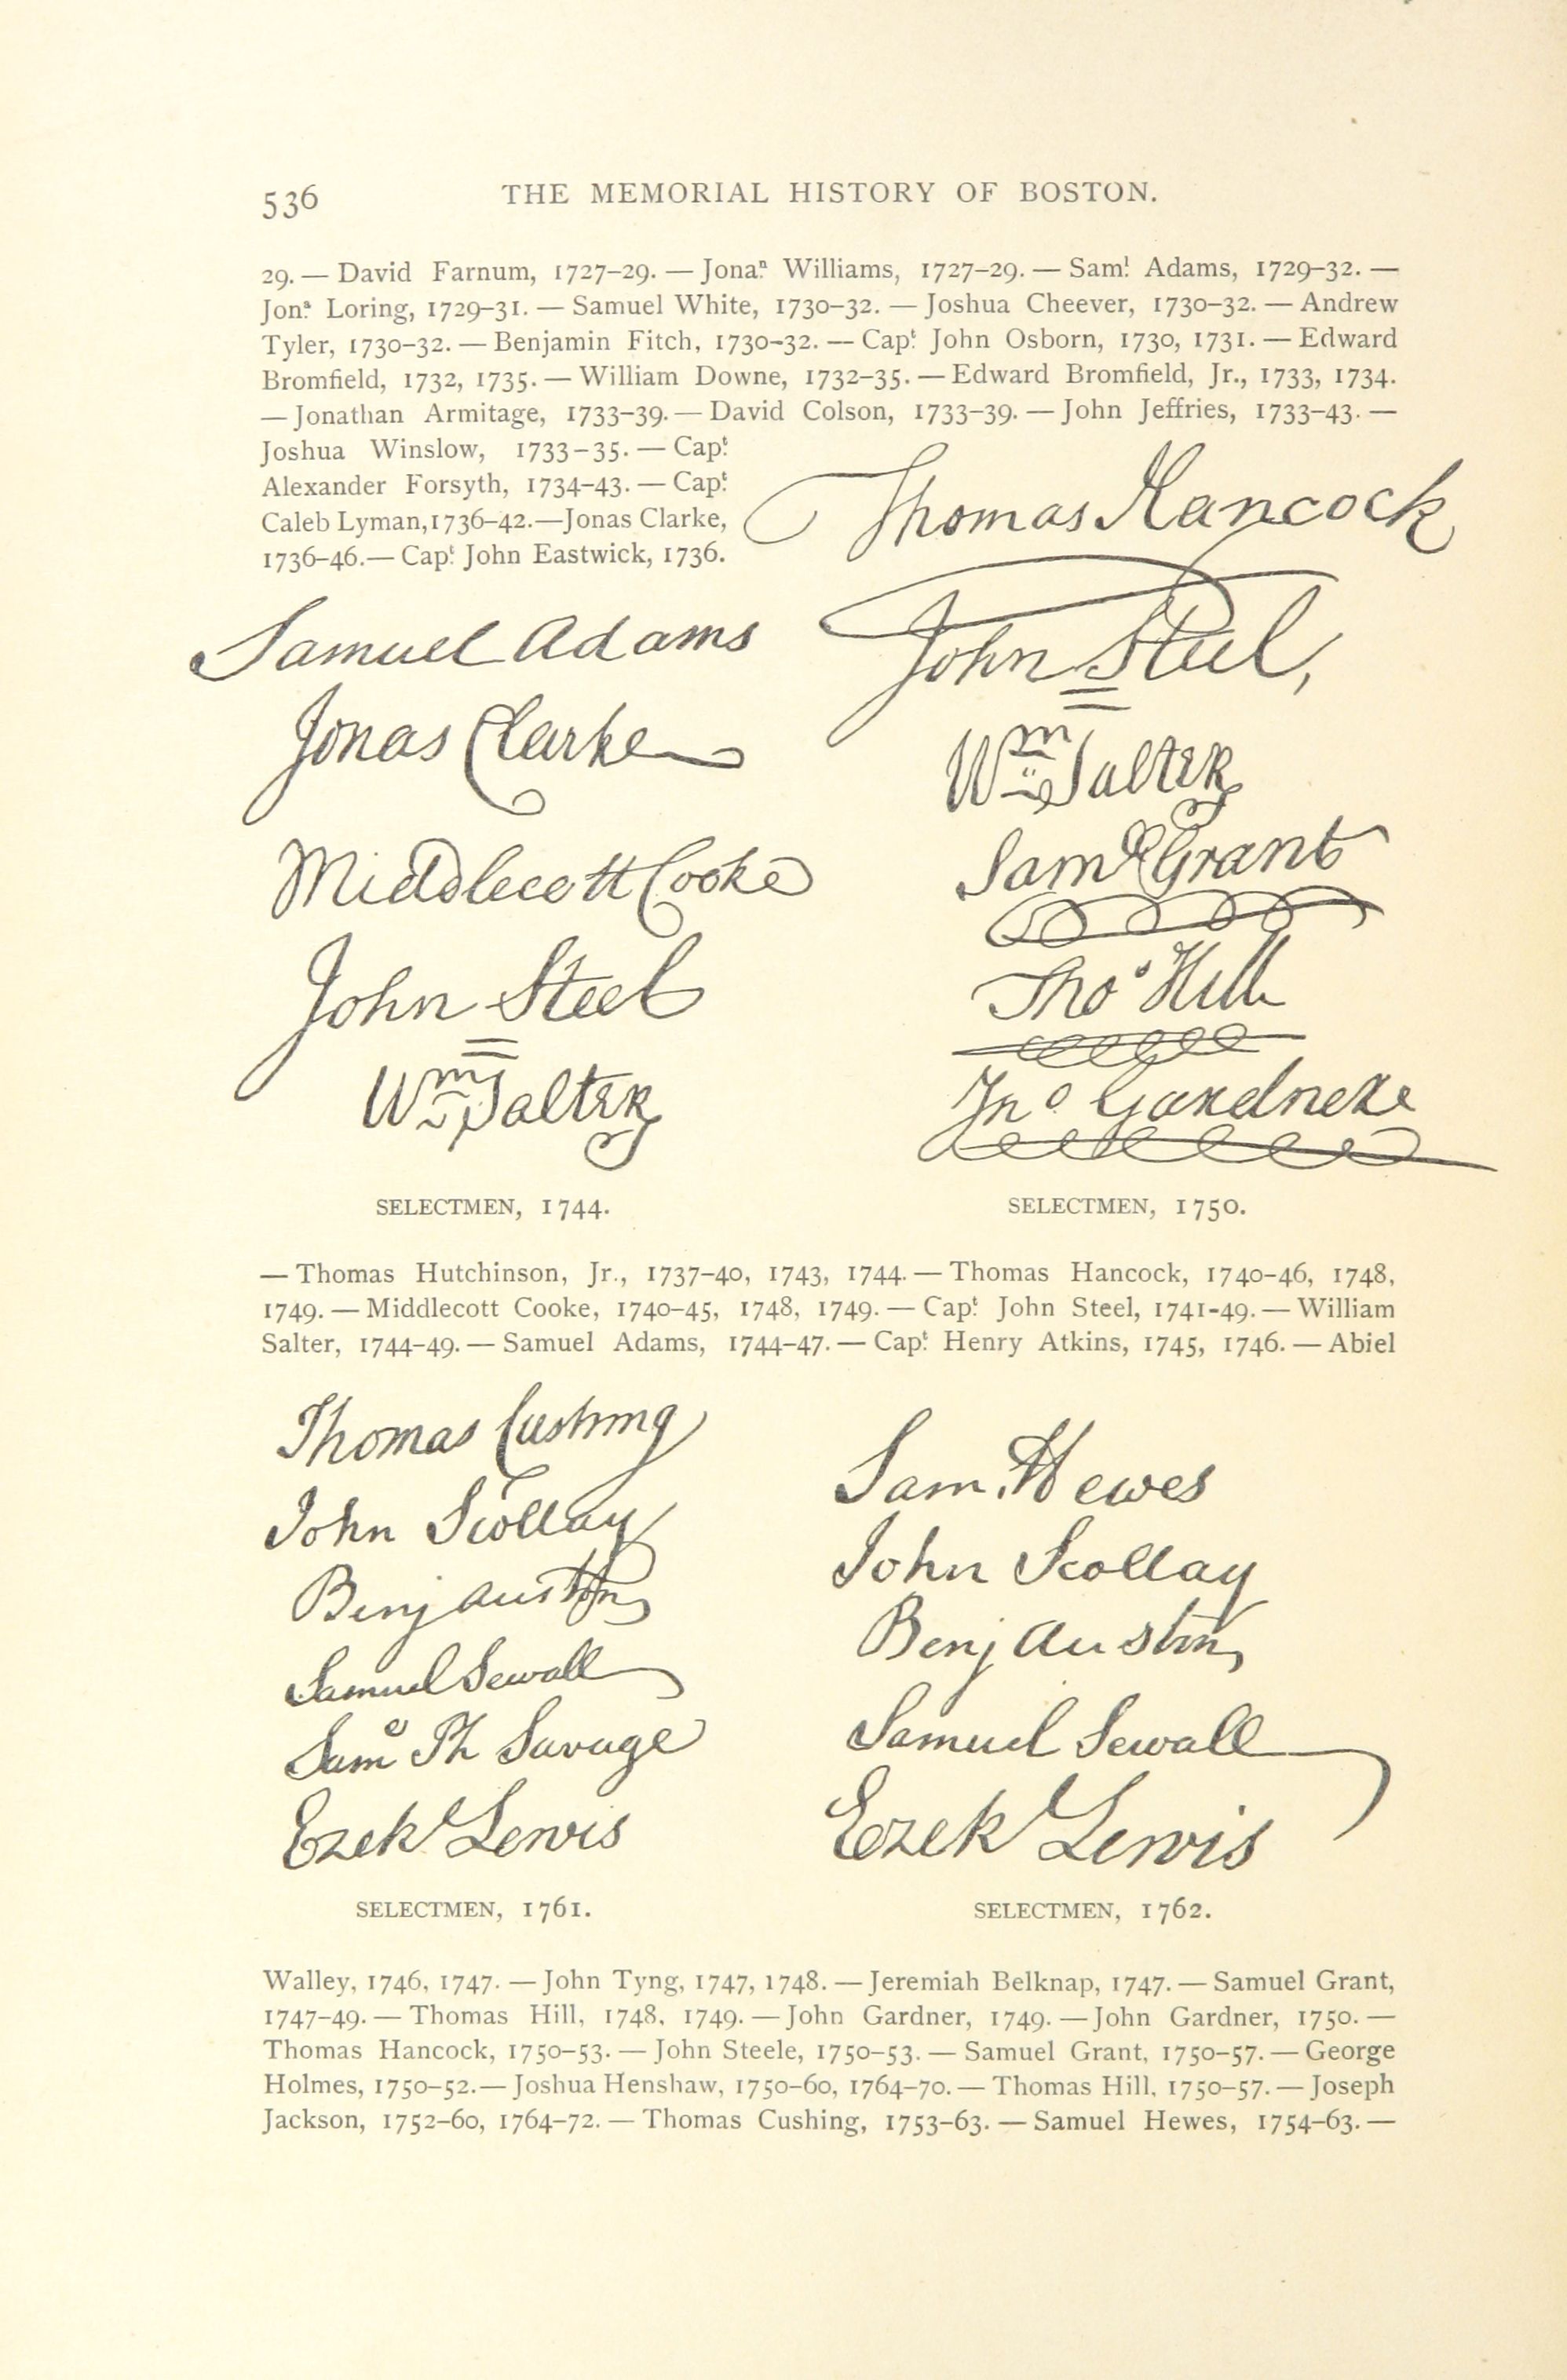 536
THE MEMORIAL HISTORY OF BOSTON.
29. — David Farnum, 1727–29. — Jona.ⁿ Williams, 1727–29. — Sam.ˡ Adams, 1729–32. —
Jon.ᵃ Loring, 1729–31. — Samuel White, 1730–32. — Joshua Cheever, 1730–32. — Andrew
Tyler, 1730–32. — Benjamin Fitch, 1730–32. — Cap.ᵗ John Osborn, 1730, 1731. — Edward
Bromfield, 1732, 1735. — William Downe, 1732–35. — Edward Bromfield, Jr., 1733, 1734.
— Jonathan Armitage, 1733–39. — David Colson, 1733–39. — John Jeffries, 1733–43. —
Joshua Winslow, 1733–35. — Cap.ᵗ
Alexander Forsyth, 1734–43. — Cap.ᵗ
Caleb Lyman, 1736–42. — Jonas Clarke,
1736–46. — Cap.ᵗ John Eastwick, 1736.
Samuel Adams
Jonas Clarke
Middlecott Cooke
John Steel
Wᵐ Salter
SELECTMEN, 1744.
Thomas Hancock
John Steel,
Wᵐ Salter
Samˡ Grant
Thoˢ Hill
Jnº Gardnere
SELECTMEN, 1750.
— Thomas Hutchinson, Jr., 1737–40, 1743, 1744. — Thomas Hancock, 1740–46, 1748,
1749. — Middlecott Cooke, 1740–45, 1748, 1749. — Cap.ᵗ John Steel, 1741–49. — William
Salter, 1744–49. — Samuel Adams, 1744–47. — Cap.ᵗ Henry Atkins, 1745, 1746. — Abiel
Thomas Cushing
John Scollay
Benj Austin
Samuel Sewall
Samˡ Ph Savage
Ezekˡ Lewis
SELECTMEN, 1761.
Sam. Hewes
John Scollay
Benj Austin
Samuel Sewall
Ezekˡ Lewis
SELECTMEN, 1762.
Walley, 1746, 1747. — John Tyng, 1747, 1748. — Jeremiah Belknap, 1747. — Samuel Grant,
1747–49. — Thomas Hill, 1748, 1749. — John Gardner, 1749. — John Gardner, 1750. —
Thomas Hancock, 1750–53. — John Steele, 1750–53. — Samuel Grant, 1750–57. — George
Holmes, 1750–52. — Joshua Henshaw, 1750–60, 1764–70. — Thomas Hill, 1750–57. — Joseph
Jackson, 1752–60, 1764–72. — Thomas Cushing, 1753–63. — Samuel Hewes, 1754–63. —